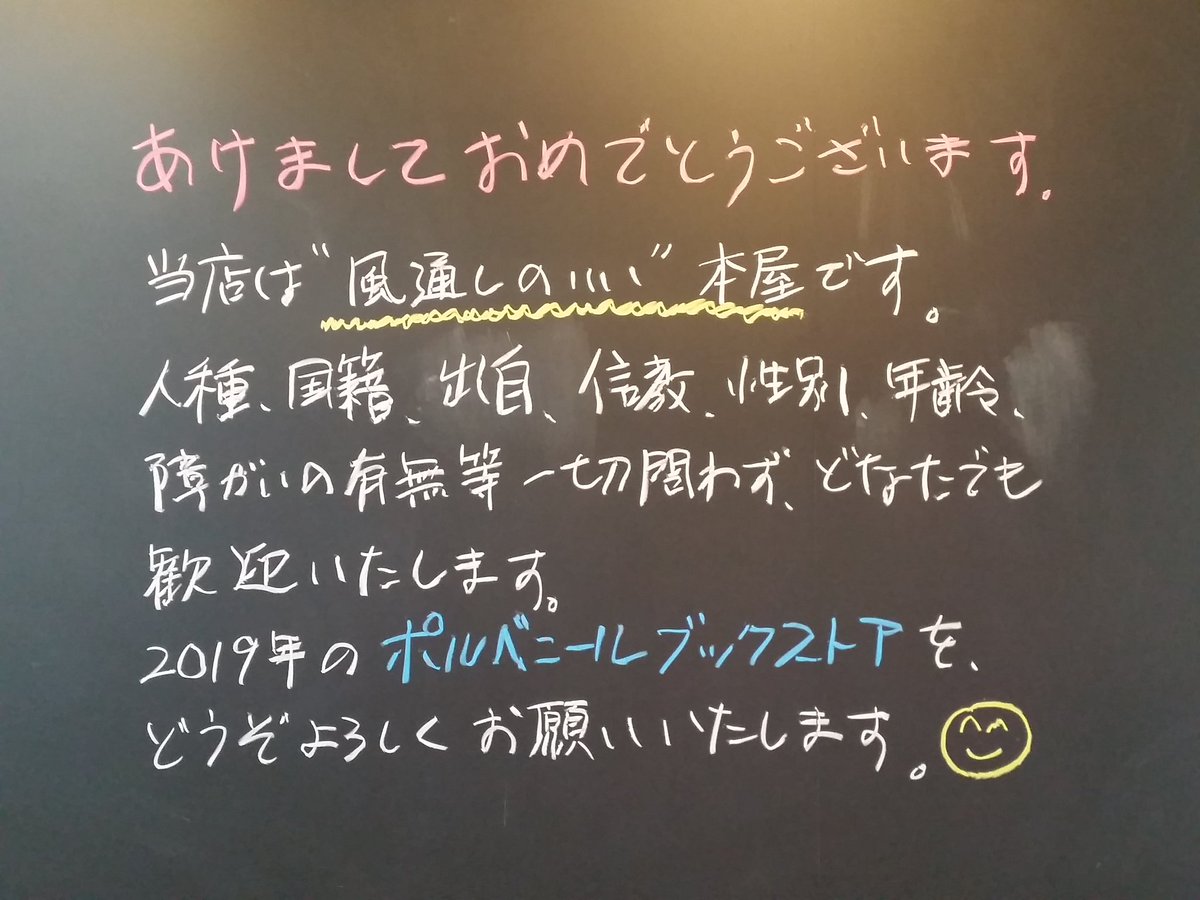 あけましておめでとうございます。
当店は"風通しのいい"本屋です。
人種、国籍、出自、信教、性別、年齢、
障がいの有無等一切問わず、どなたでも
歓迎いたします。
2019年のポルベニールブックストアを、
どうぞよろしくお願いいたします。